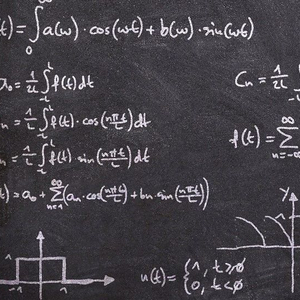 (t) = ∫₀^∞ a(ω)·cos(ωt) + b(ω)·sin(ωt)
a₀ = 1/2L ∫_{-L}^{L} f(t) dt
Cₙ = 1/2L
n = 1/L ∫_{-L}^{L} f(t)·cos(nπt/L) dt
f(t) = Σ_{n=-∞}^{∞}
n = 1/L ∫_{-L}^{L} f(t)·sin(nπt/L) dt
(t) = a₀ + Σ_{n=1}^{∞} (aₙ·cos(nπt/L) + bₙ·sin(nπt/L))
y
1
-1 1
u(t) = {1, t≥0
0, t<0